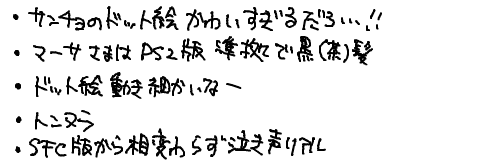 ・サンチョのドット絵かわいすぎるだろ…!!
・マーサさまはPS2版準拠で黒(茶)髪
・ドット絵動き細かいなー
・トンヌラ
・SFC版から相変わらず泣き声リアル